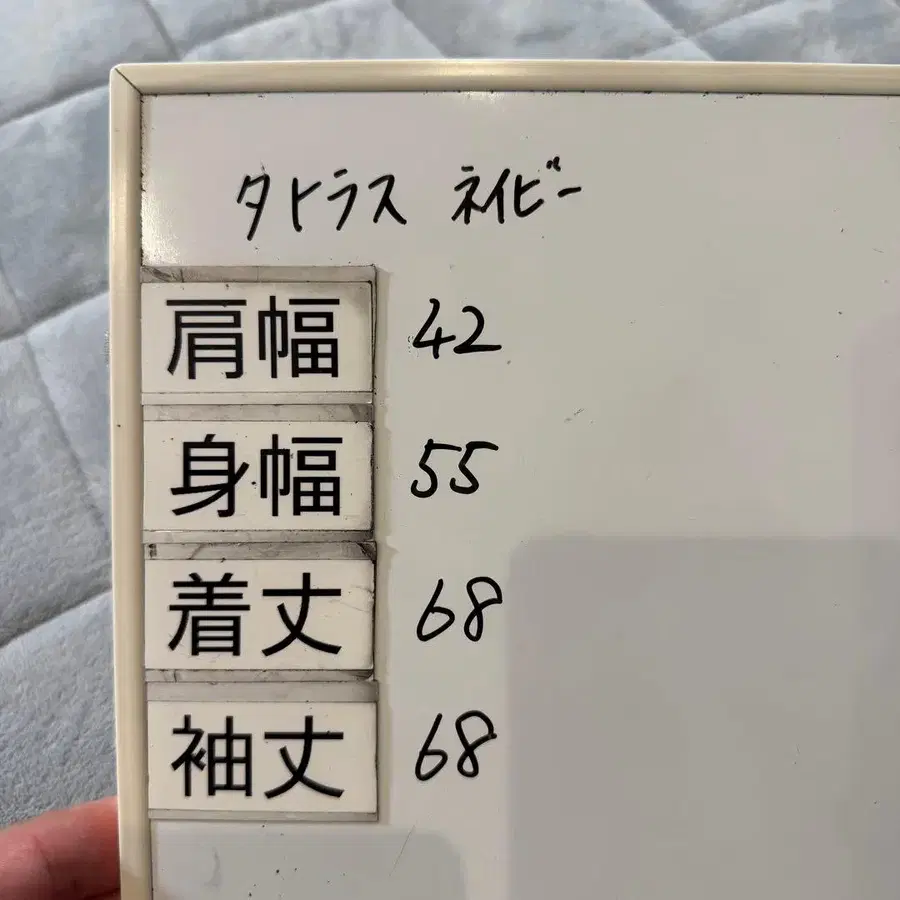 タトラス ネイビー
肩幅 42
身幅 55
着丈 68
袖丈 68